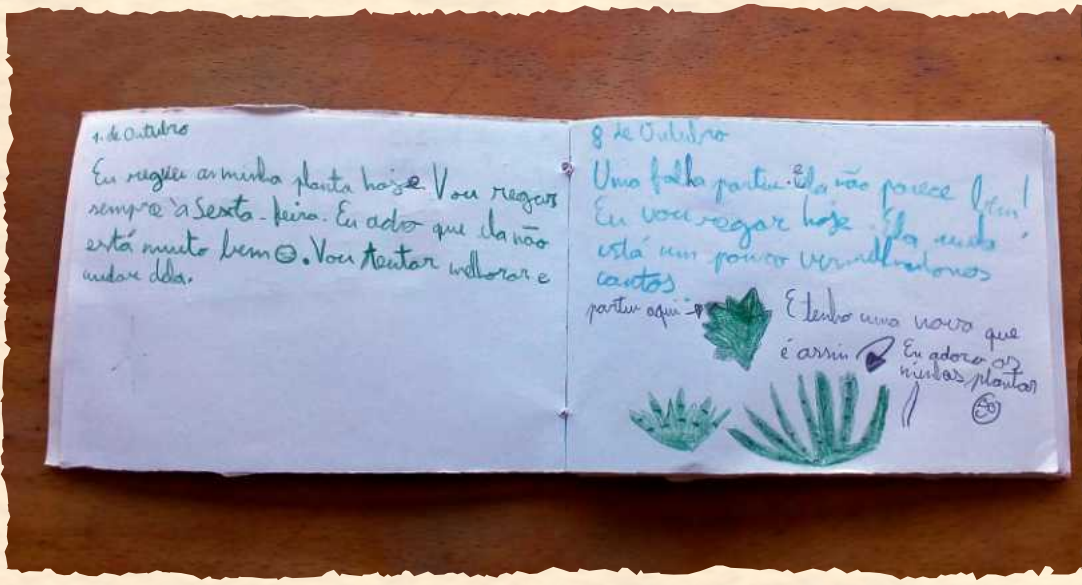 1. de Outubro
Eu reguei as minha planta hoje Vou regar
sempre à Sesta-feira. Eu ado que ela não
está muito bem. Vou tentar melhorar e
dela.
8 de Outubro
Uma folha partiu. Ela não parece bem!
Eu vou regar hoje. Ela
está um pouco nos
cantos
partiu aqui →
E tenho uma nova que
é assim
Eu adoro as
minhas plantas